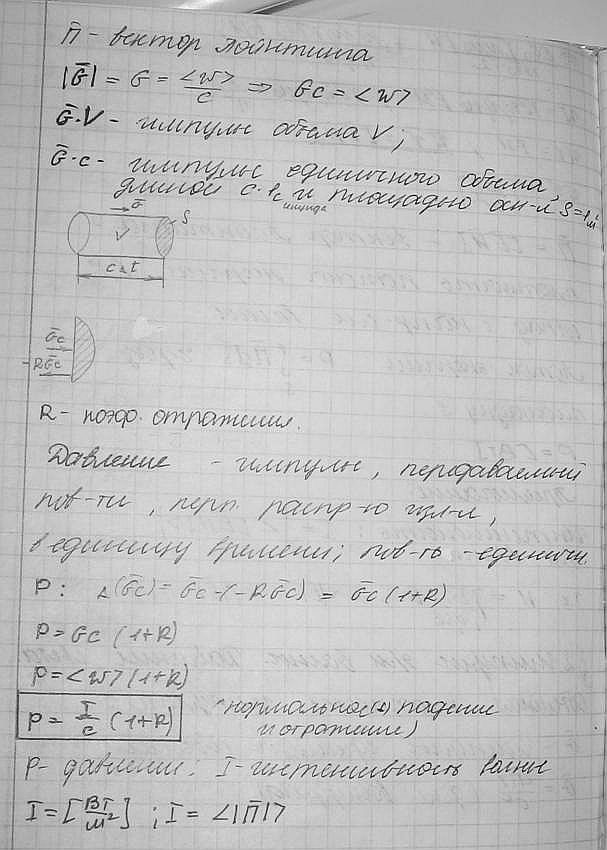 П̄ - вектор Пойнтинга
|Ḡ| = G = <w>/c ⇒ Gc = <w>
Ḡ·V - импульс объема V;
Ḡ·c - импульс единичного объема
длиной c·1c и площадью осн-я S=1м²
Ḡ
S
V
cΔt
Ḡc
-RḠc
R - коэф. отражения.
Давление - импульс, передаваемый
пов-ти, перп. распр-ю изл-я,
в единицу времени; пов-ть - единичн.
P: Δ(Ḡc) = Ḡc-(-RḠc) = Ḡc(1+R)
P = Gc (1+R)
P = <w>(1+R)
P = I/c (1+R) (нормальное(⊥) падение
и отражение)
P - давление; I - интенсивность волны
I = [Вт/м²] ; I = <|П̄|>